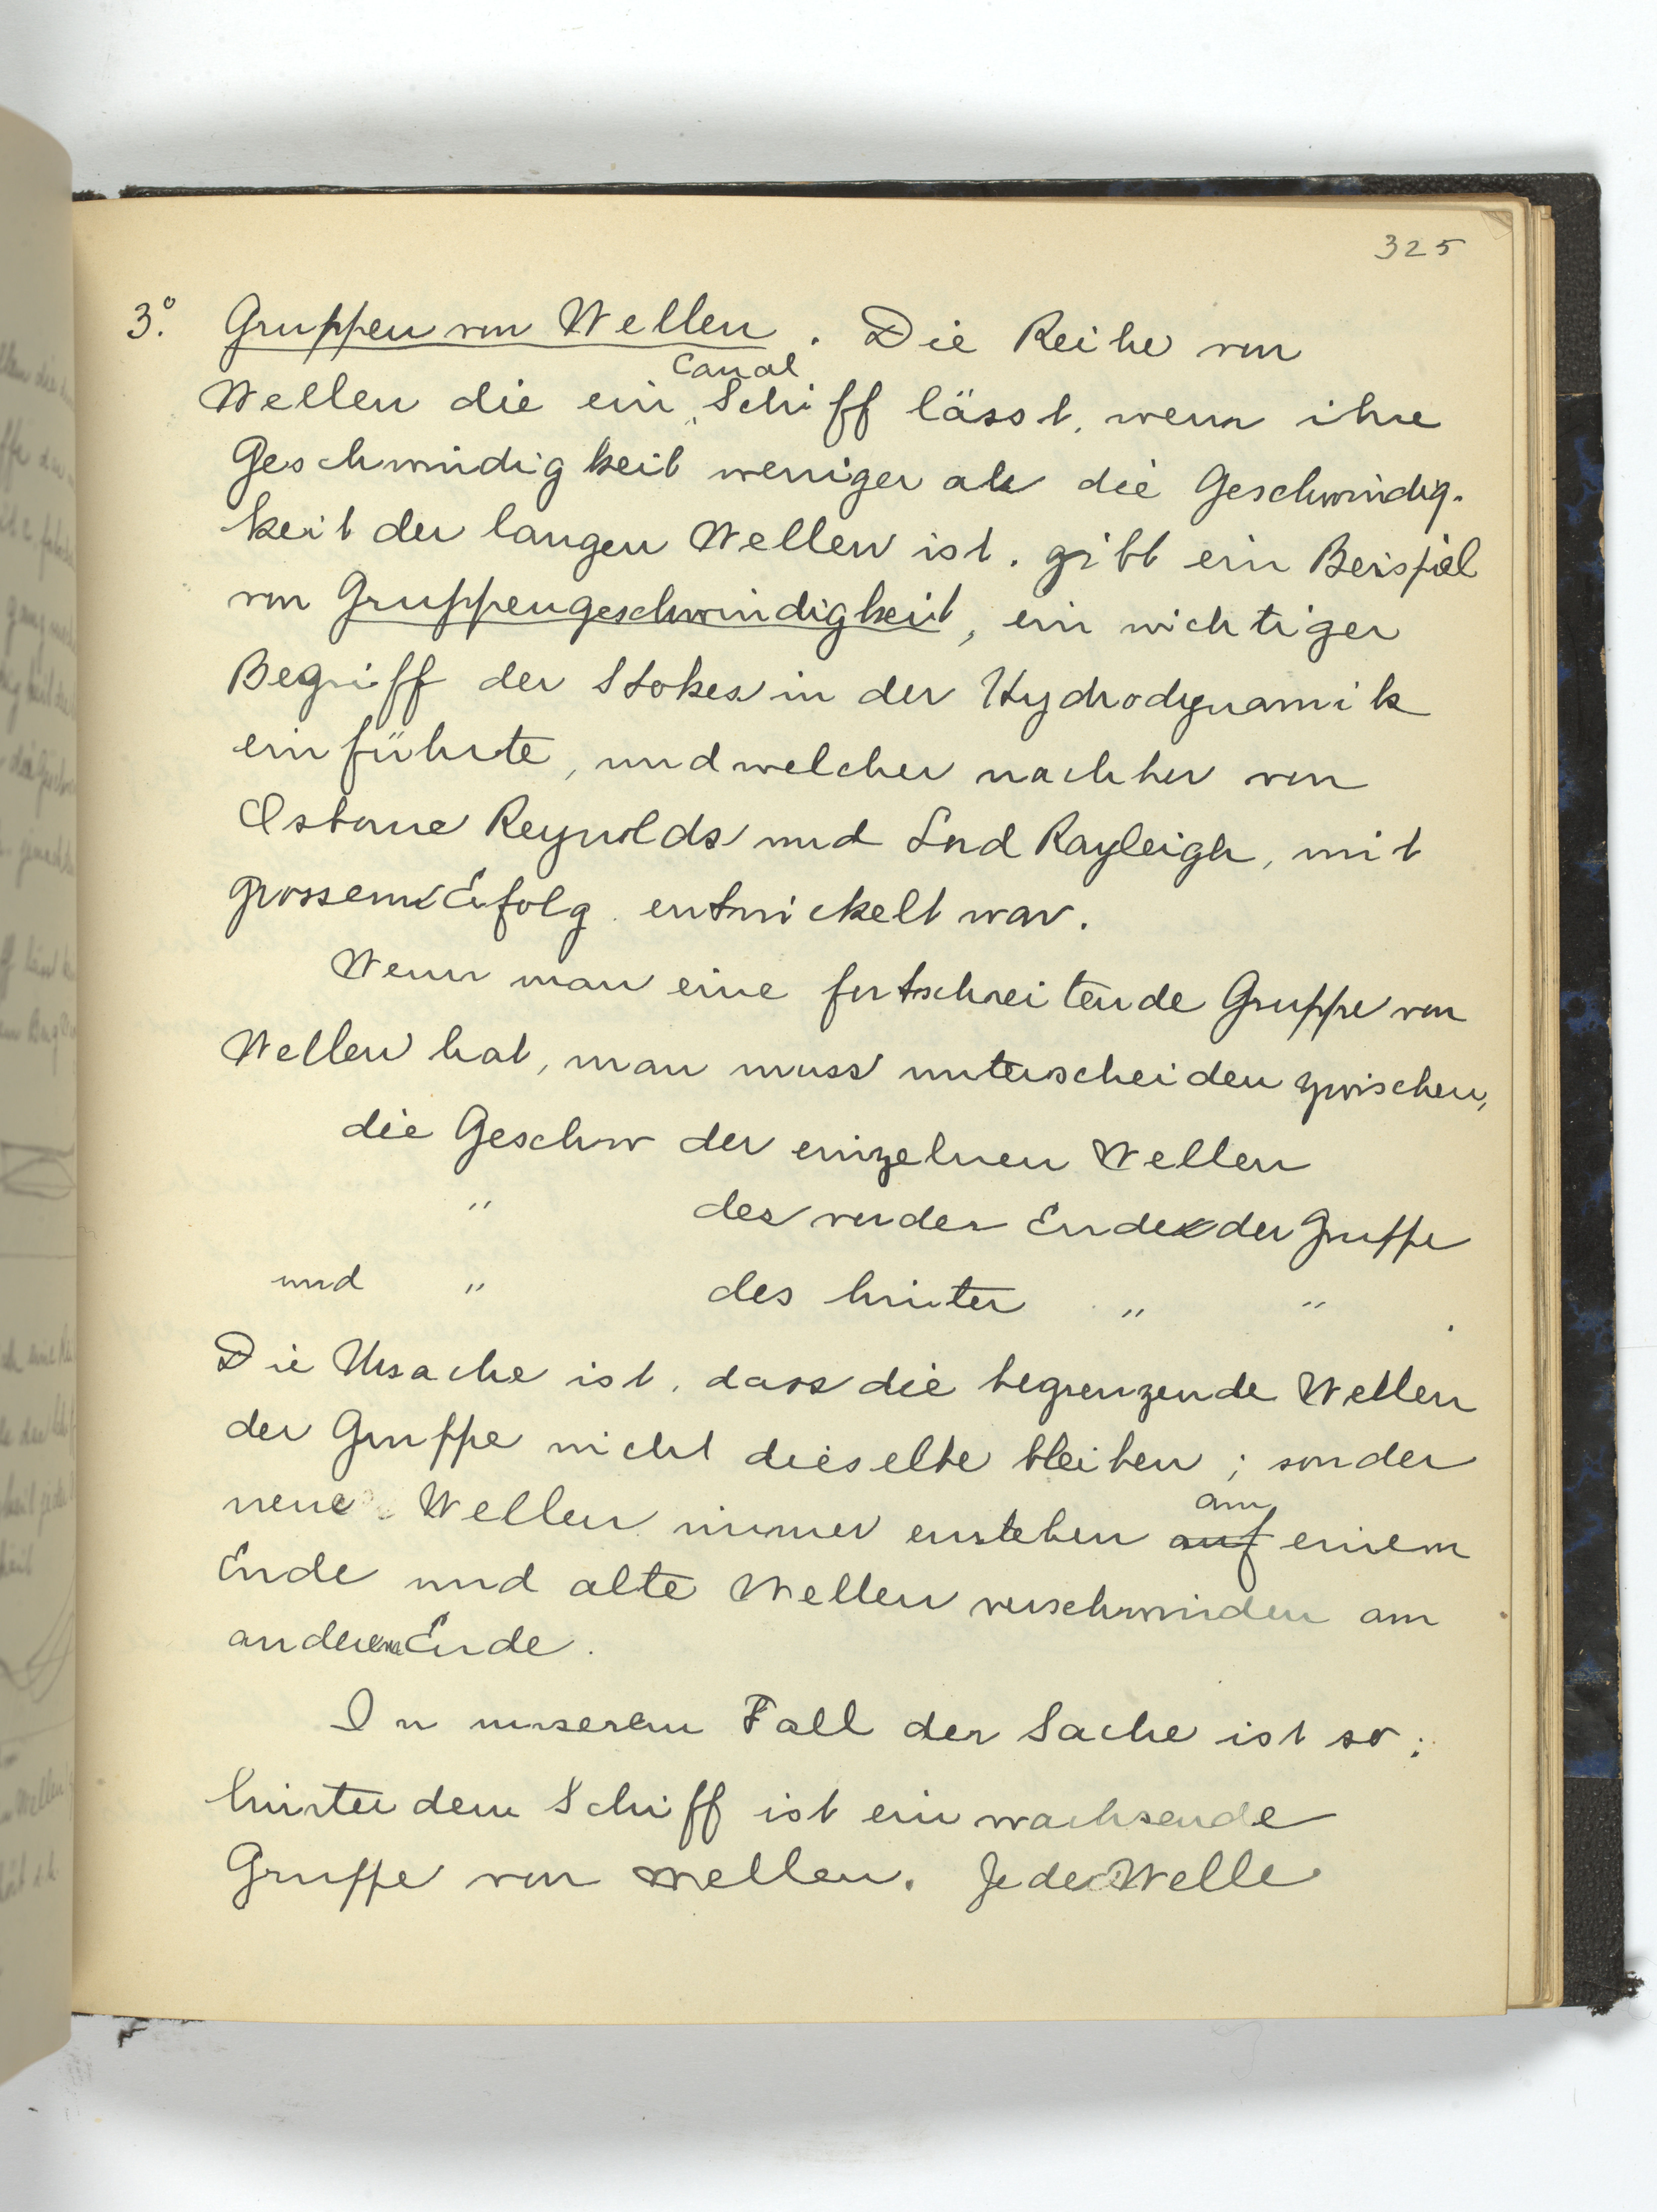 325
3°. Gruppen von Wellen. Die Reihe von
Canal
Wellen die ein Schiff lässt, wenn ihre
Geschwindigkeit weniger als die Geschwindig-
keit der langen Wellen ist. gibt ein Beispiel
von Gruppengeschwindigkeit, ein wichtiger
Begriff der Stokes in der Hydrodynamik
einführte, und welcher nachher von
Osborne Reynolds und Lord Rayleigh, mit
grossem Erfolg entwickelt war.
Wenn man eine fortschreitende Gruppe von
Wellen hat, man muss unterscheiden zwischen,
die Geschw der einzelnen Wellen
" des vorder Ende der Gruppe
und " des hinter " " .
Die Ursache ist, dass die begrenzende Wellen
der Gruppe nicht dieselbe bleiben ; sonder
am
neue Wellen immer enstehen auf einem
Ende und alte Wellen verschwinden am
anderen Ende.
In unserem Fall der Sache ist so:
hinter dem Schiff ist ein wachsende
Gruppe von Wellen. Jede Welle